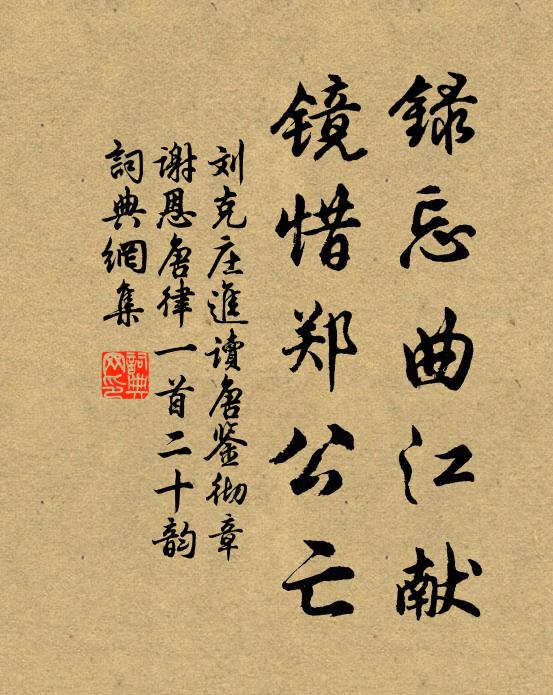 録忘曲江献
镜惜郑公亡
刘克庄進讀唐鉴彻章
谢恩唐律一首二十韵
詞典網集
詞典网印